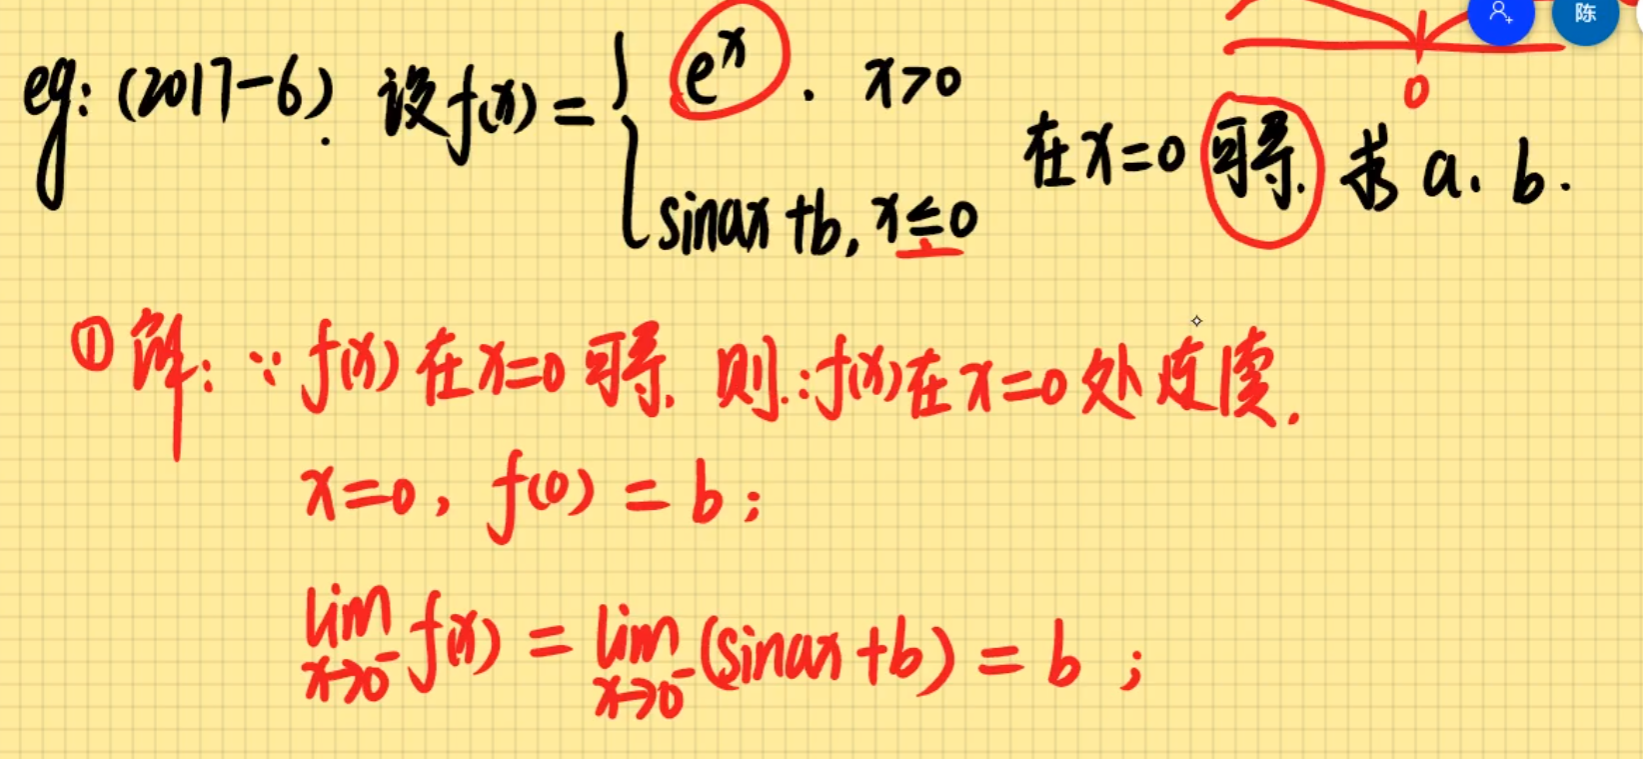 陈
0
eg: (2017-6). 设f(x) = { e^x . x>0
sinax+b, x≤0
在x=0可导. 求a. b.
① 解: ∵ f(x)在x=0可导. 则.: f(x)在x=0处连续.
x=0, f(0) = b;
lim x→0⁻ f(x) = lim x→0⁻ (sinax+b) = b ;